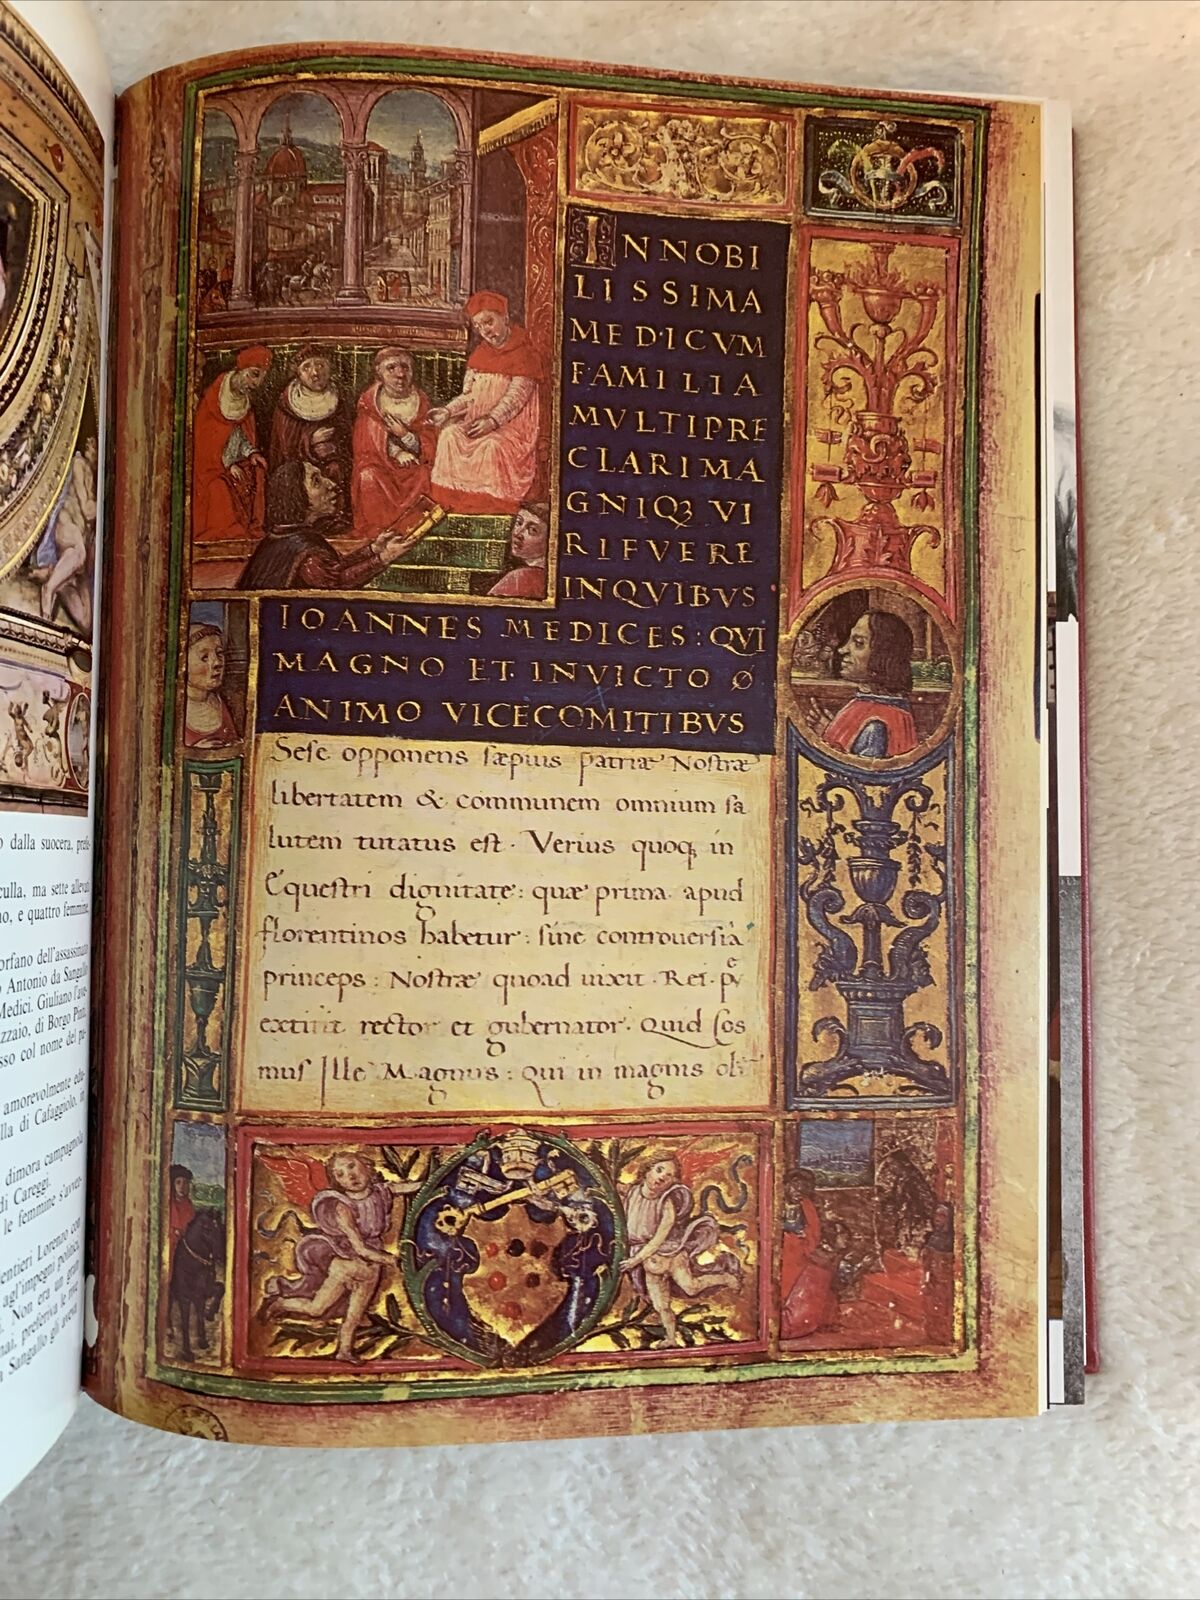 o dalla suocera, prefe-
culla, ma sette allevati
no, e quattro femmine,
orfano dell'assassinato
o Antonio da Sangallo
Medici. Giuliano l'ave-
zzaio, di Borgo Pinti,
sso col nome del pa-
amorevolmente edu-
lla di Cafaggiolo, in
dimora campagnola
di Careggi.
le femmine s'avver-
entieri Lorenzo con
agl'impegni politici,
. Non era un gran
mai, preferiva le
Sangallo gli aveva
INNOBI
LISSIMA
MEDICVM
FAMILIA
MVLTIPRE
CLARIMA
GNIQȜ VI
RIFVERE
INQVIBVS
IOANNES MEDICES : QVI
MAGNO ET INVICTO Ø
ANIMO VICECOMITIBVS
Sese opponens sæpius patriæ Nostræ
libertatem & communem omnium sa
lutem tutatus est · Verius quoq; in
Equestri dignitate : quæ prima apud
florentinos habetur : sine controuersia
princeps : Nostræ quoad uixit · Rei · p
extitit rector et gubernator · Quid Cos
mus Ille Magnus : Qui in magnis